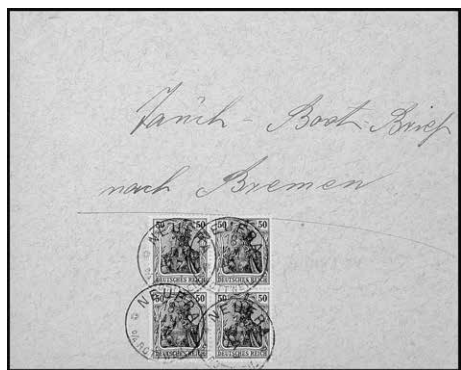 Tauch-Boot-Brief
nach Bremen
50 50 50 50
DEUTSCHES REICH DEUTSCHES REICH
50 50 50 50
DEUTSCHES REICH DEUTSCHES REICH